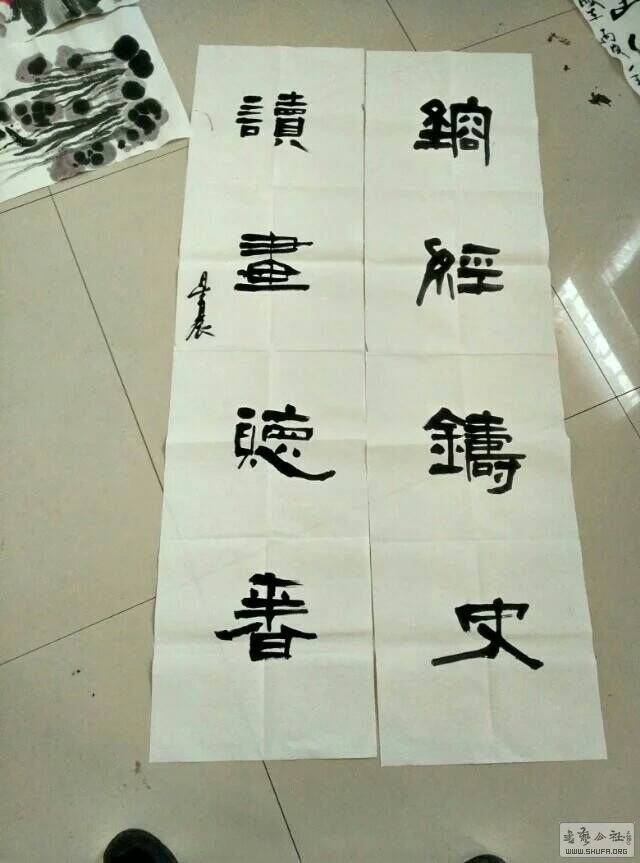 鎔經鑄史
讀畫聽香
書藝公社
WWW.SHUFA.ORG